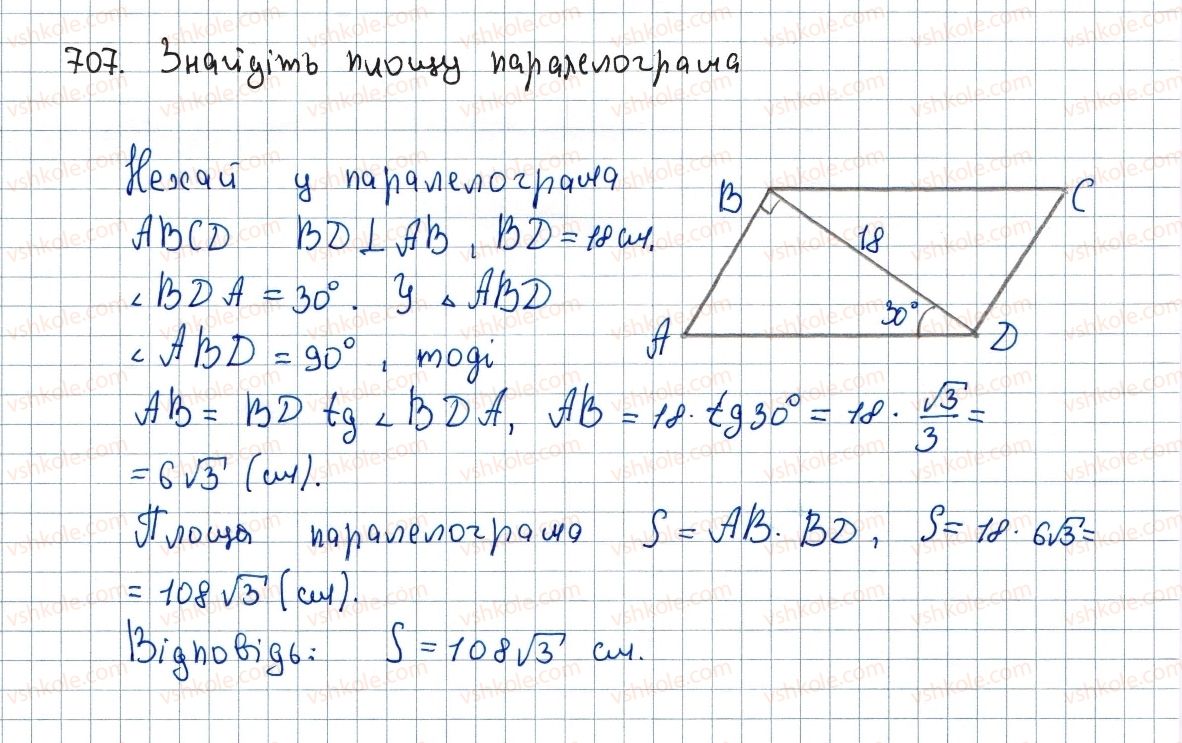 707. Знайдіть площу паралелограма
Нехай у паралелограма
ABCD BD ⊥ AB, BD = 18 см.
∠ BDA = 30°. У △ ABD
∠ ABD = 90°, тоді
AB = BD tg ∠ BDA, AB = 18 · tg 30° = 18 · √3/3 =
= 6√3 (см).
Площа паралелограма S = AB · BD, S = 18 · 6√3 =
= 108√3 (см).
Відповідь: S = 108√3 см.
B
C
18
30°
A
D
vshkole.com